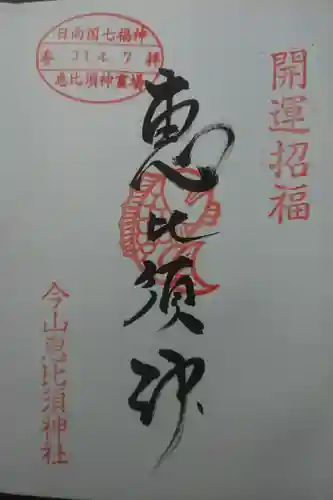 開運招福
日向国七福神
参 31.4.7 拝
恵比須神霊場
恵比須神
今山恵比須神社